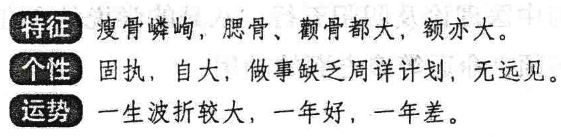 特征 瘦骨嶙峋，腮骨、颧骨都大，额亦大。
个性 固执，自大，做事缺乏周详计划，无远见。
运势 一生波折较大，一年好，一年差。